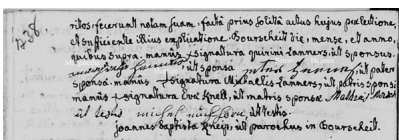 1838
ritos, fecerunt notam suam, facta prius solita actus hujus praelectione,
et sufficiente illius explicatione Bourscheit die, mense, et anno,
quibus supra. manus + signatura quirini Lanners, ut sponsus.
ut sponsa ut pater
sponsae manus + signatura Michaelis Lanners, ut patris sponsi
manus + signatura Evae Knell, ut matris sponsae
ut testis michel ut testis.
Joannes baptista Kneip, ut parochus in Bourscheit.